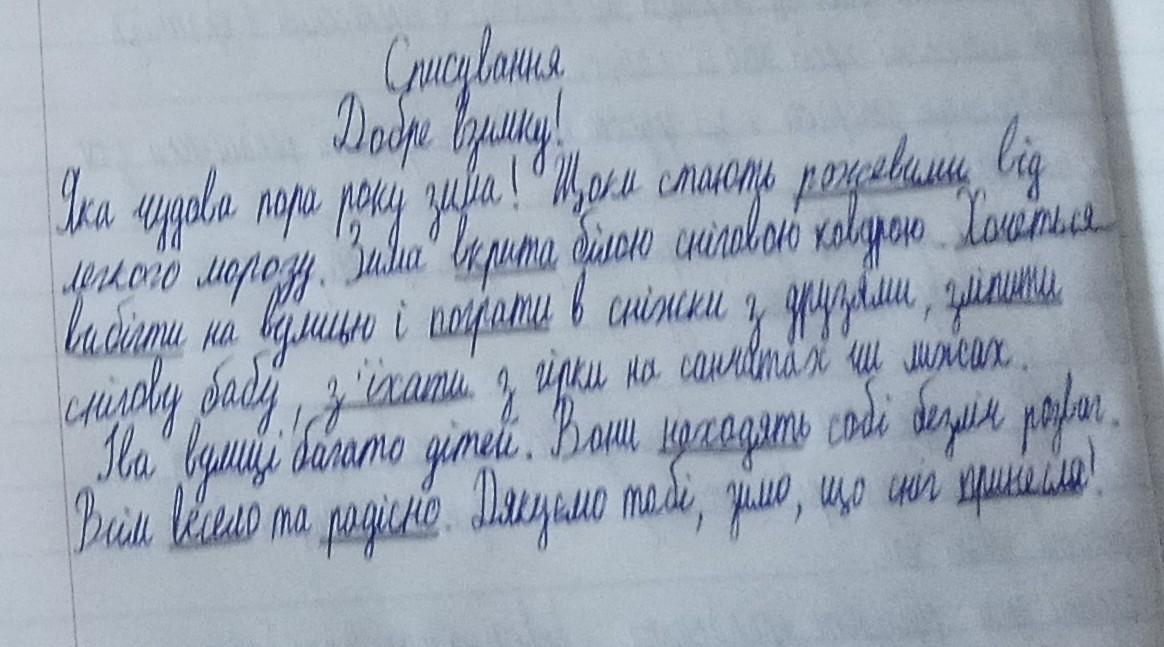 Списування
Добре взимку!
Яка чудова пора року зима! Щоки стають рожевими від
легкого морозу. Зима вкрита білою сніговою ковдрою. Хочеться
вибігти на вулицю і пограти в сніжки з друзями, зліпити
снігову бабу, з'їхати з гірки на санчатах чи лижах.
На вулиці багато дітей. Вони находять собі безліч розваг.
Всім весело та радісно. Дякуємо тобі, зимо, що сніг принесла!